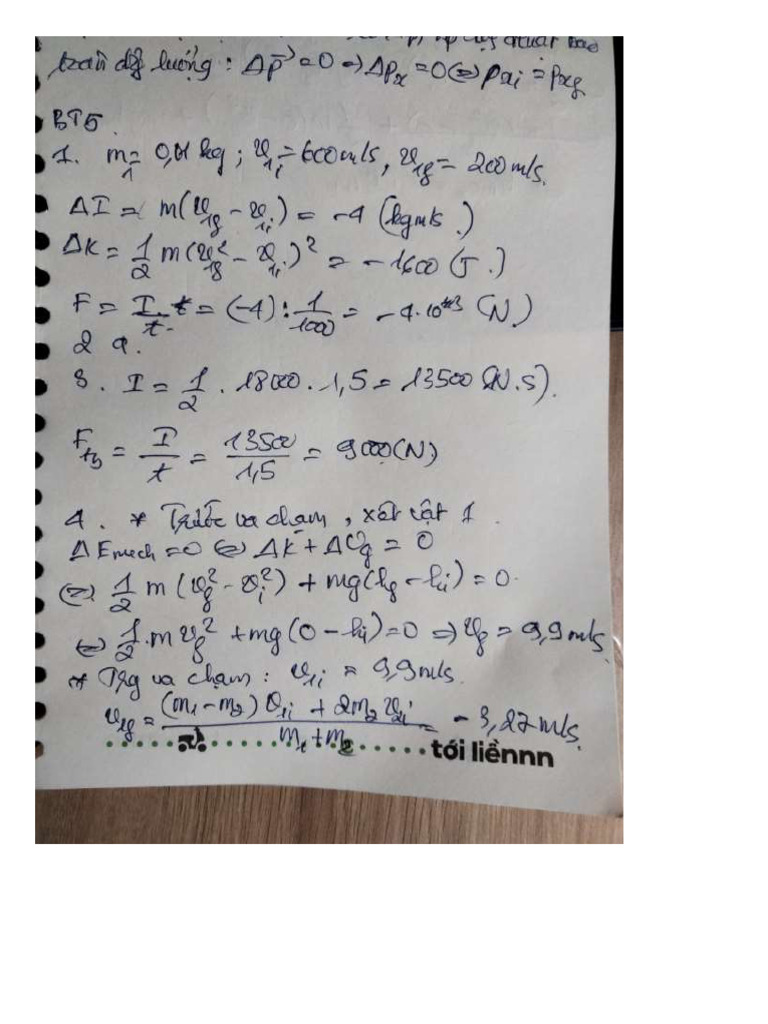 toàn động lượng : Δp⃗ = 0 ⇒ Δpₓ = 0 ⇔ pxi = pxf
BT5.
1. m₁ = 0,01 kg ; v₁i = 600 m/s, v₁f = 200 m/s.
ΔI = m(v₁f - v₁i) = -4 (kgm/s.)
ΔK = 1/2 m(v₁f² - v₁i)² = -1600 (J.)
F = I/t. t = (-4) : 1/1000 = -4.10³ (N.)
2 a.
3. I = 1/2 . 18000 . 1,5 = 13500 (N.s).
Ftb = I/t = 13500/1,5 = 9000 (N)
4. * Trước va chạm, xét vật 1.
ΔEmech = 0 ⇔ ΔK + ΔUg = 0
⇔ 1/2 m (vf² - vi²) + mg(hf - hi) = 0.
⇔ 1/2 . m vf² + mg (0 - hi) = 0 ⇒ vf = 9,9 m/s.
* Trg va chạm : v₁i = 9,9 m/s.
v₁f = (m₁ - m₂) v₁i + 2m₂ v₂i / m₁ + m₂ = -3,27 m/s.
tới liềnnn